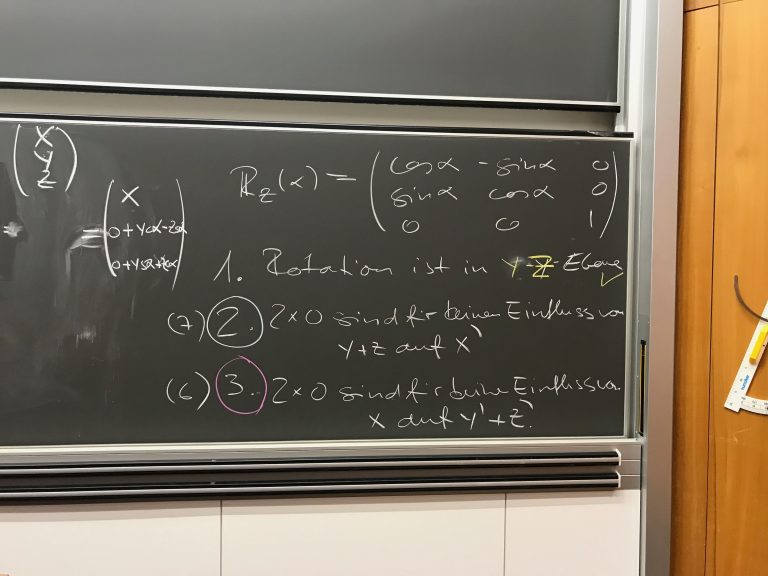 X
Y
Z
R_z(α) = ( cosα - sinα 0
sinα cosα 0
0 0 1 )
= ( X
0+Ycα-Zsα
0+Ysα+Zcα )
1. Rotation ist in Y-Z-Ebene
(7) 2. 2×0 sind für keinen Einfluss von
Y+Z auf X'
(6) 3. 2×0 sind für keine Einfluss von
X auf Y'+Z'